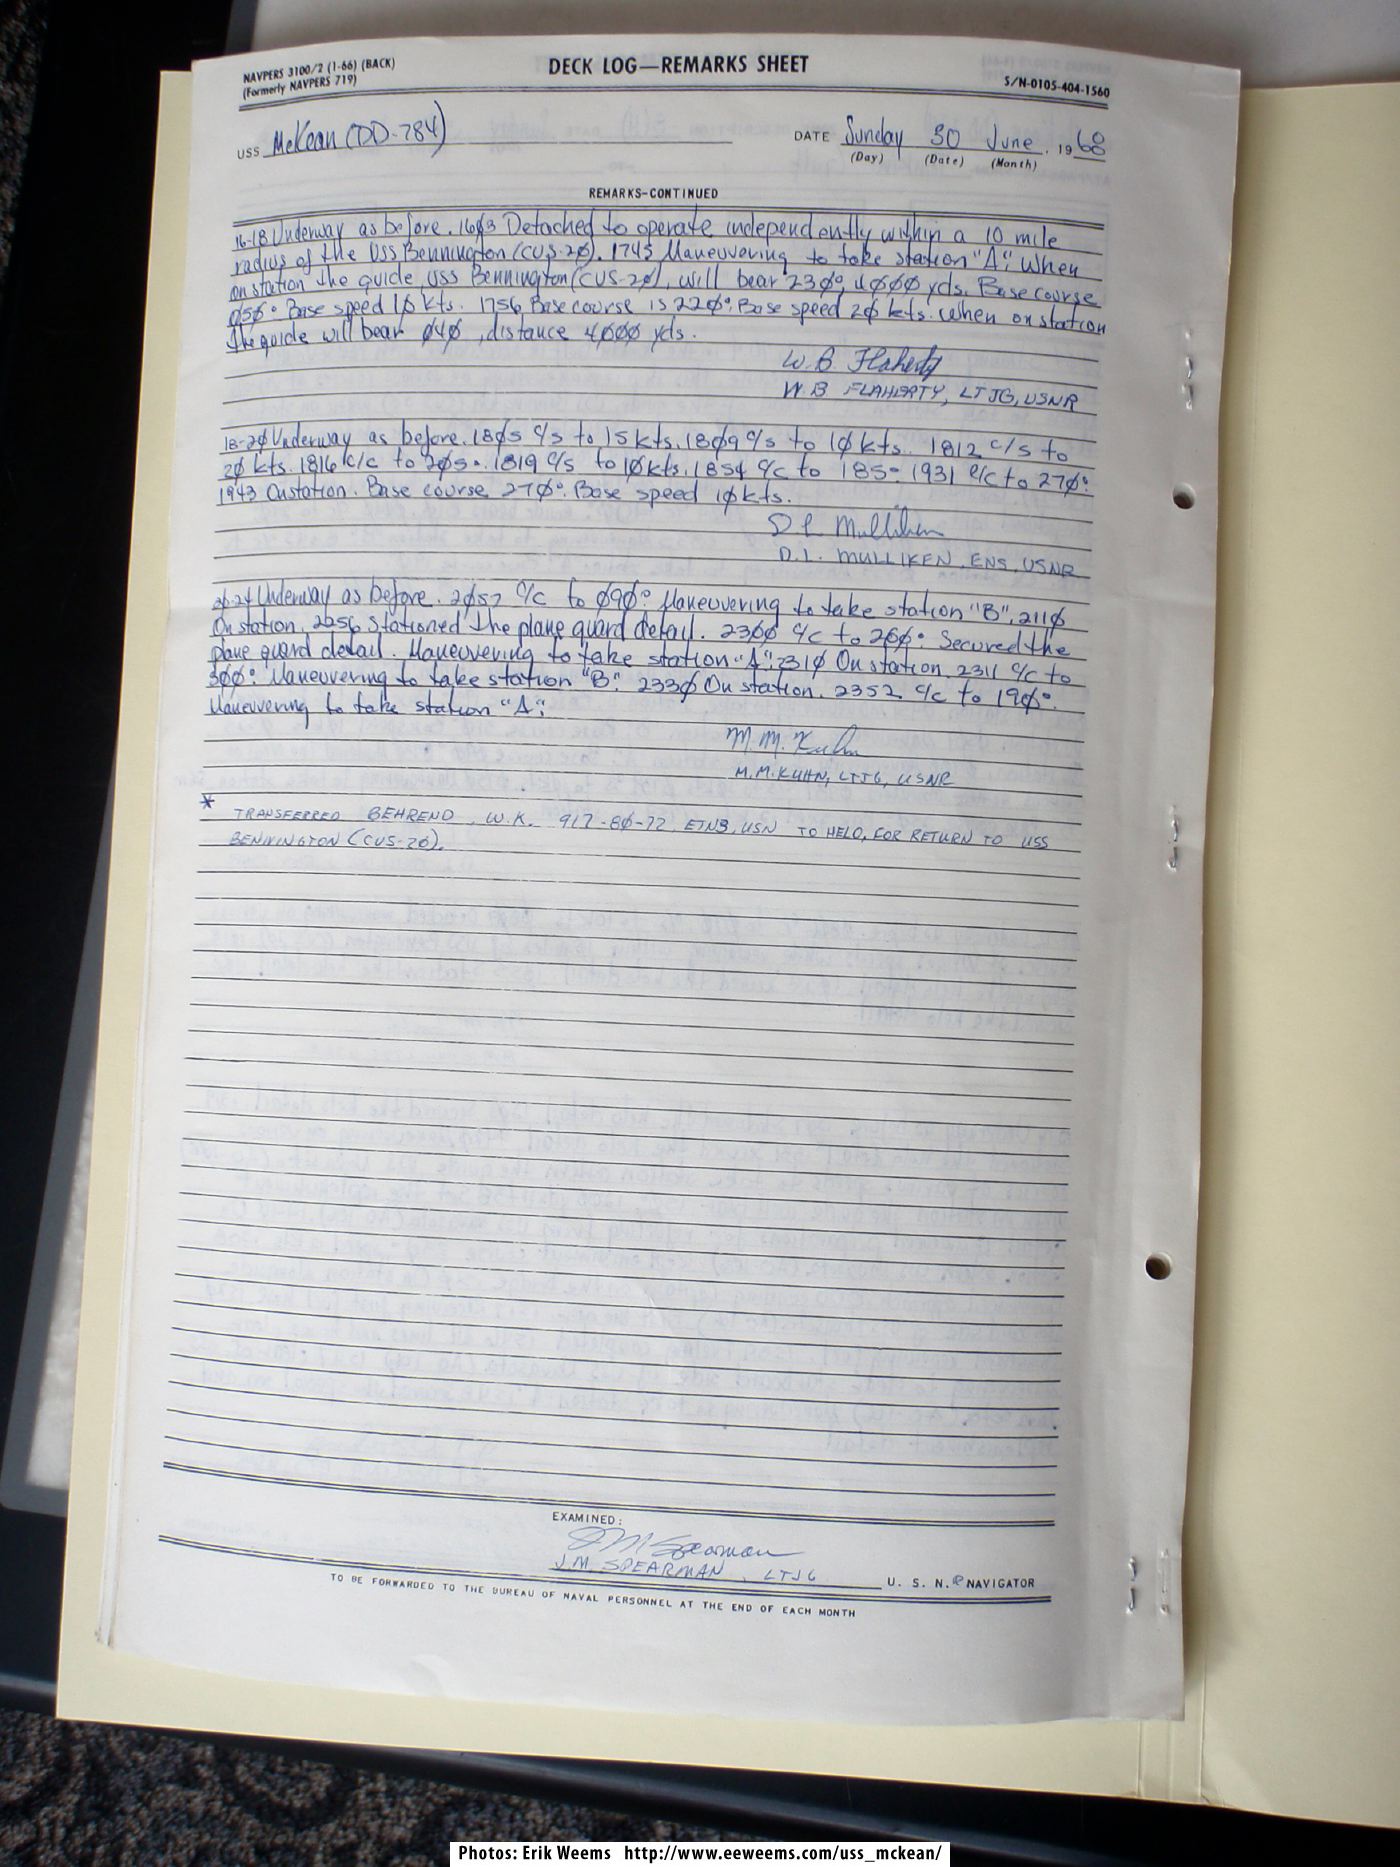 NAVPERS 3100/2 (1-66) (BACK)
(Formerly NAVPERS 719)
DECK LOG—REMARKS SHEET
S/N-0105-404-1560
USS McKean (DD-784)
DATE Sunday 30 June, 1968
(Day) (Date) (Month)
REMARKS-CONTINUED
16-18 Underway as before. 16Ø3 Detached to operate independently within a 10 mile
radius of the USS Bennington (CVS-2Ø). 1745 Maneuvering to take station "A". When
on station the guide, USS Bennington (CVS-2Ø), will bear 23Ø°, 4ØØØ yds. Base course
Ø5Ø° Base speed 1Ø kts. 1756 Base course is 22Ø°. Base speed 2Ø kts. When on station
the guide will bear Ø4Ø, distance 4ØØØ yds.
W. B. Flaherty
W. B. FLAHERTY, LTJG, USNR
18-2Ø Underway as before. 18Ø5 c/s to 15 kts. 18Ø9 c/s to 1Ø kts. 1812 c/s to
2Ø kts. 1816 c/c to 2Ø5°. 1819 c/s to 1Ø kts. 1854 c/c to 185° 1931 c/c to 27Ø°.
1943 On station. Base course 27Ø°. Base speed 1Ø kts.
D L Mulliken
D. L. MULLIKEN, ENS, USNR
2Ø-24 Underway as before. 2Ø57 c/c to Ø9Ø°. Maneuvering to take station "B". 211Ø
On station. 2256 Stationed the plane guard detail. 23ØØ c/c to 2ØØ°. Secured the
plane guard detail. Maneuvering to take station "A". 231Ø On station. 2311 c/c to
3ØØ°. Maneuvering to take station "B". 233Ø On station. 2352 c/c to 19Ø°.
Maneuvering to take station "A".
M. M. Kuhn
M. M. KUHN, LTJG, USNR
* TRANSFERRED BEHREND, W.K. 917-8Ø-72, ETN3, USN TO HELO, FOR RETURN TO USS
BENNINGTON (CVS-2Ø).
EXAMINED:
J M Spearman
J. M. SPEARMAN, LTJG U. S. N. R NAVIGATOR
TO BE FORWARDED TO THE BUREAU OF NAVAL PERSONNEL AT THE END OF EACH MONTH
Photos: Erik Weems http://www.eeweems.com/uss_mckean/